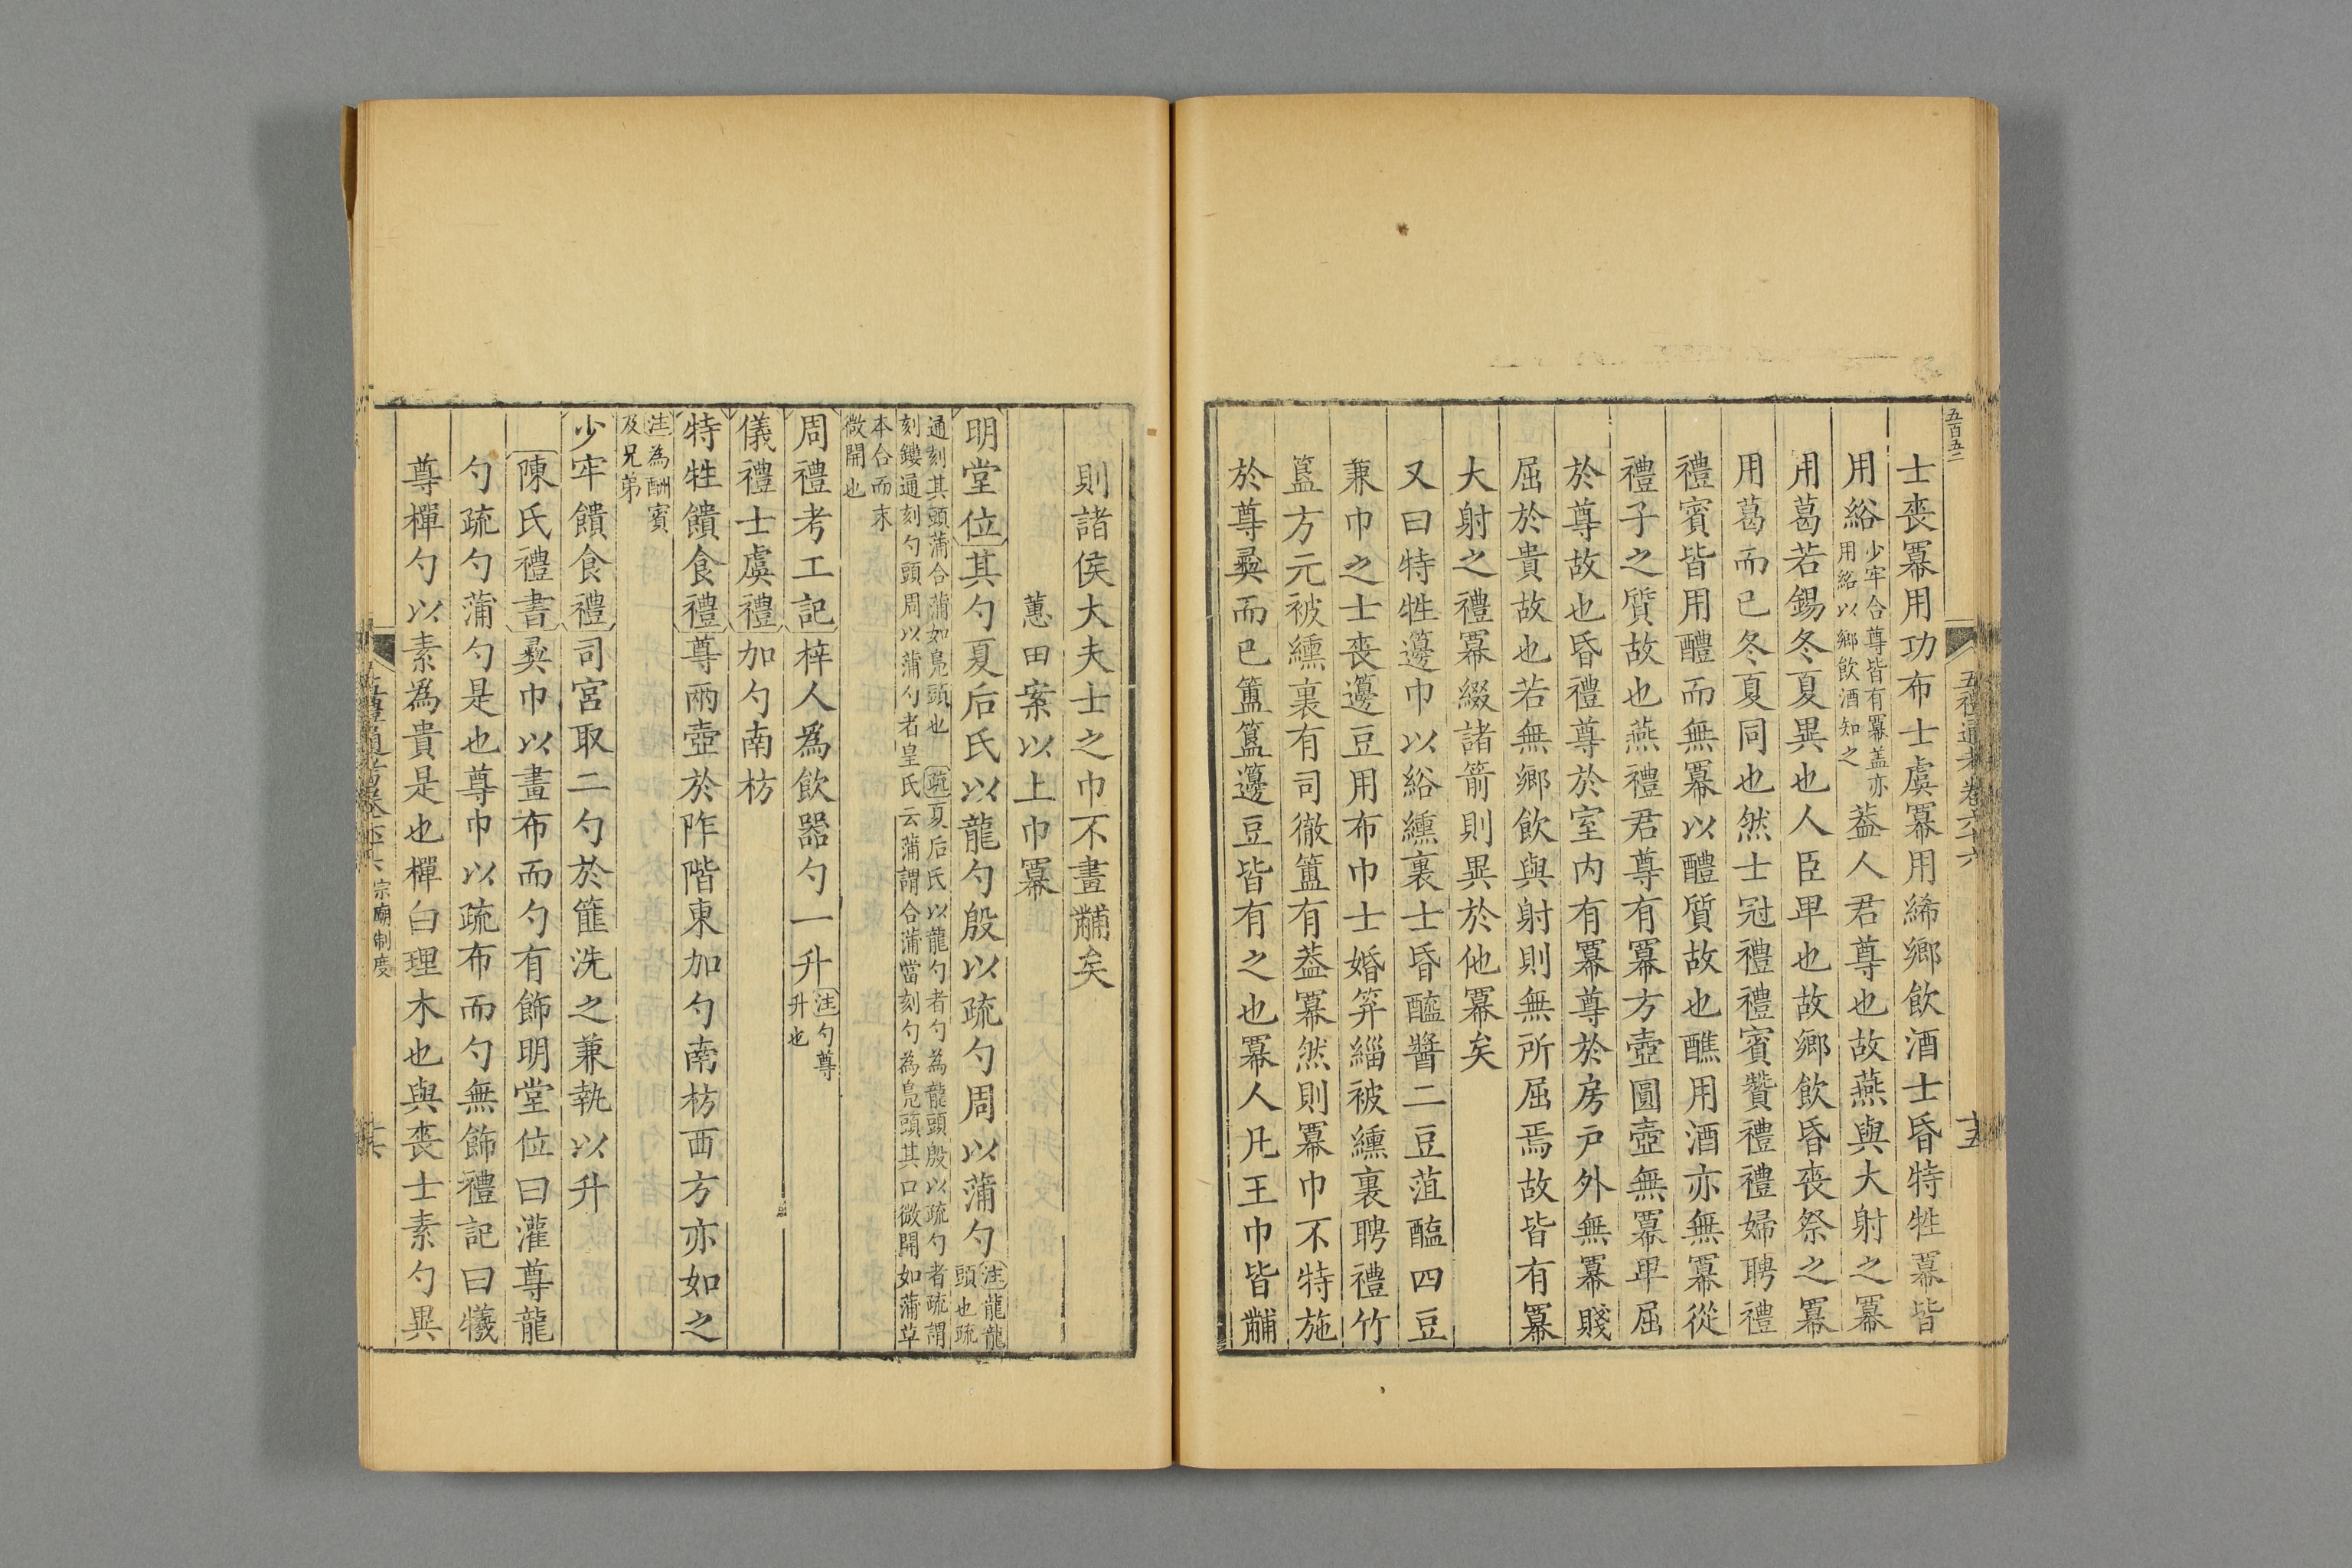 五百五二
五禮通考卷六十六
十五
士喪冪用功布士虞冪用絺鄉飲酒士昏特牲冪皆
用綌少牢合尊皆有冪盖亦用綌以鄉飲酒知之葢人君尊也故燕與大射之冪
用葛若錫冬夏異也人臣卑也故鄉飲昏喪祭之冪
用葛而已冬夏同也然士冠禮禮賓贊禮禮婦聘禮
禮賓皆用醴而無冪以醴質故也醮用酒亦無冪從
禮子之質故也燕禮君尊有冪方壺圓壺無冪卑屈
於尊故也昏禮尊於室内有冪尊於房戶外無冪賤
屈於貴故也若無鄉飲與射則無所屈焉故皆有冪
大射之禮冪綴諸箭則異於他冪矣
又曰特牲籩巾以綌纁裏士昏醯醬二豆菹醢四豆
兼巾之士喪籩豆用布巾士婚笄緇被纁裏聘禮竹
簋方元被纁裏有司徹簠有葢冪然則冪巾不特施
於尊彝而已簠簋籩豆皆有之也冪人凡王巾皆黼
則諸侯大夫士之巾不畫黼矣
蕙田案以上巾冪
明堂位其勺夏后氏以龍勺殷以疏勺周以蒲勺注龍龍頭也疏
通刻其頭蒲合蒲如鳧頭也 疏夏后氏以龍勺者勺為龍頭殷以疏勺者疏謂
刻鏤通刻勺頭周以蒲勺者皇氏云蒲謂合蒲當刻勺為鳧頭其口微開如蒲草
本合而末微開也
周禮考工記梓人爲飲器勺一升注勺尊升也
儀禮士虞禮加勺南枋
特牲饋食禮尊兩壺於阼階東加勺南枋西方亦如之
注為酬賓及兄弟
少牢饋食禮司宮取二勺於篚洗之兼執以升
陳氏禮書彝巾以畫布而勺有飾明堂位曰灌尊龍
勺疏勺蒲勺是也尊巾以疏布而勺無飾禮記曰犧
尊樿勺以素爲貴是也樿白理木也與喪士素勺異
宗廟制度
十六